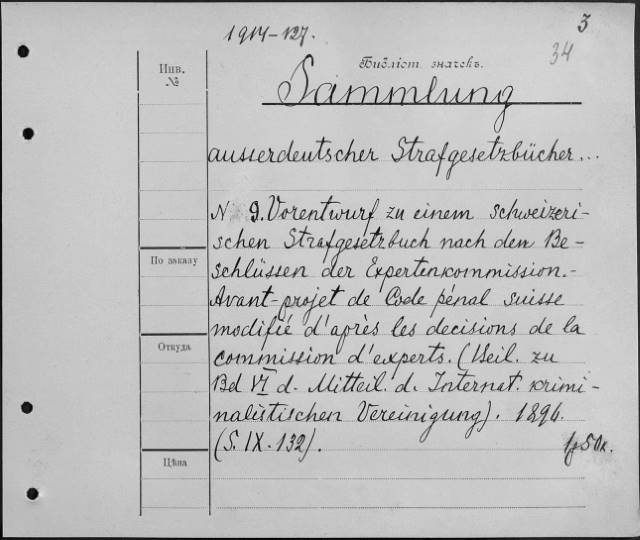 3
1914-127.
34
Библіот. значекъ.
Инв.
№
Sammlung
ausserdeutscher Strafgesetzbücher...
N 9. Vorentwurf zu einem schweizeri-
schen Strafgesetzbuch nach den Be-
По заказу
schlüssen der Expertenkommission.-
Avant-projet de Code pénal suisse
modifié d'après les decisions de la
Откуда
commission d'experts. (Beil. zu
Bd VI d. Mitteil. d. Internat. krimi-
nalistischen Vereinigung). 1896.
(S. IX. 132).
50к.
Цѣна